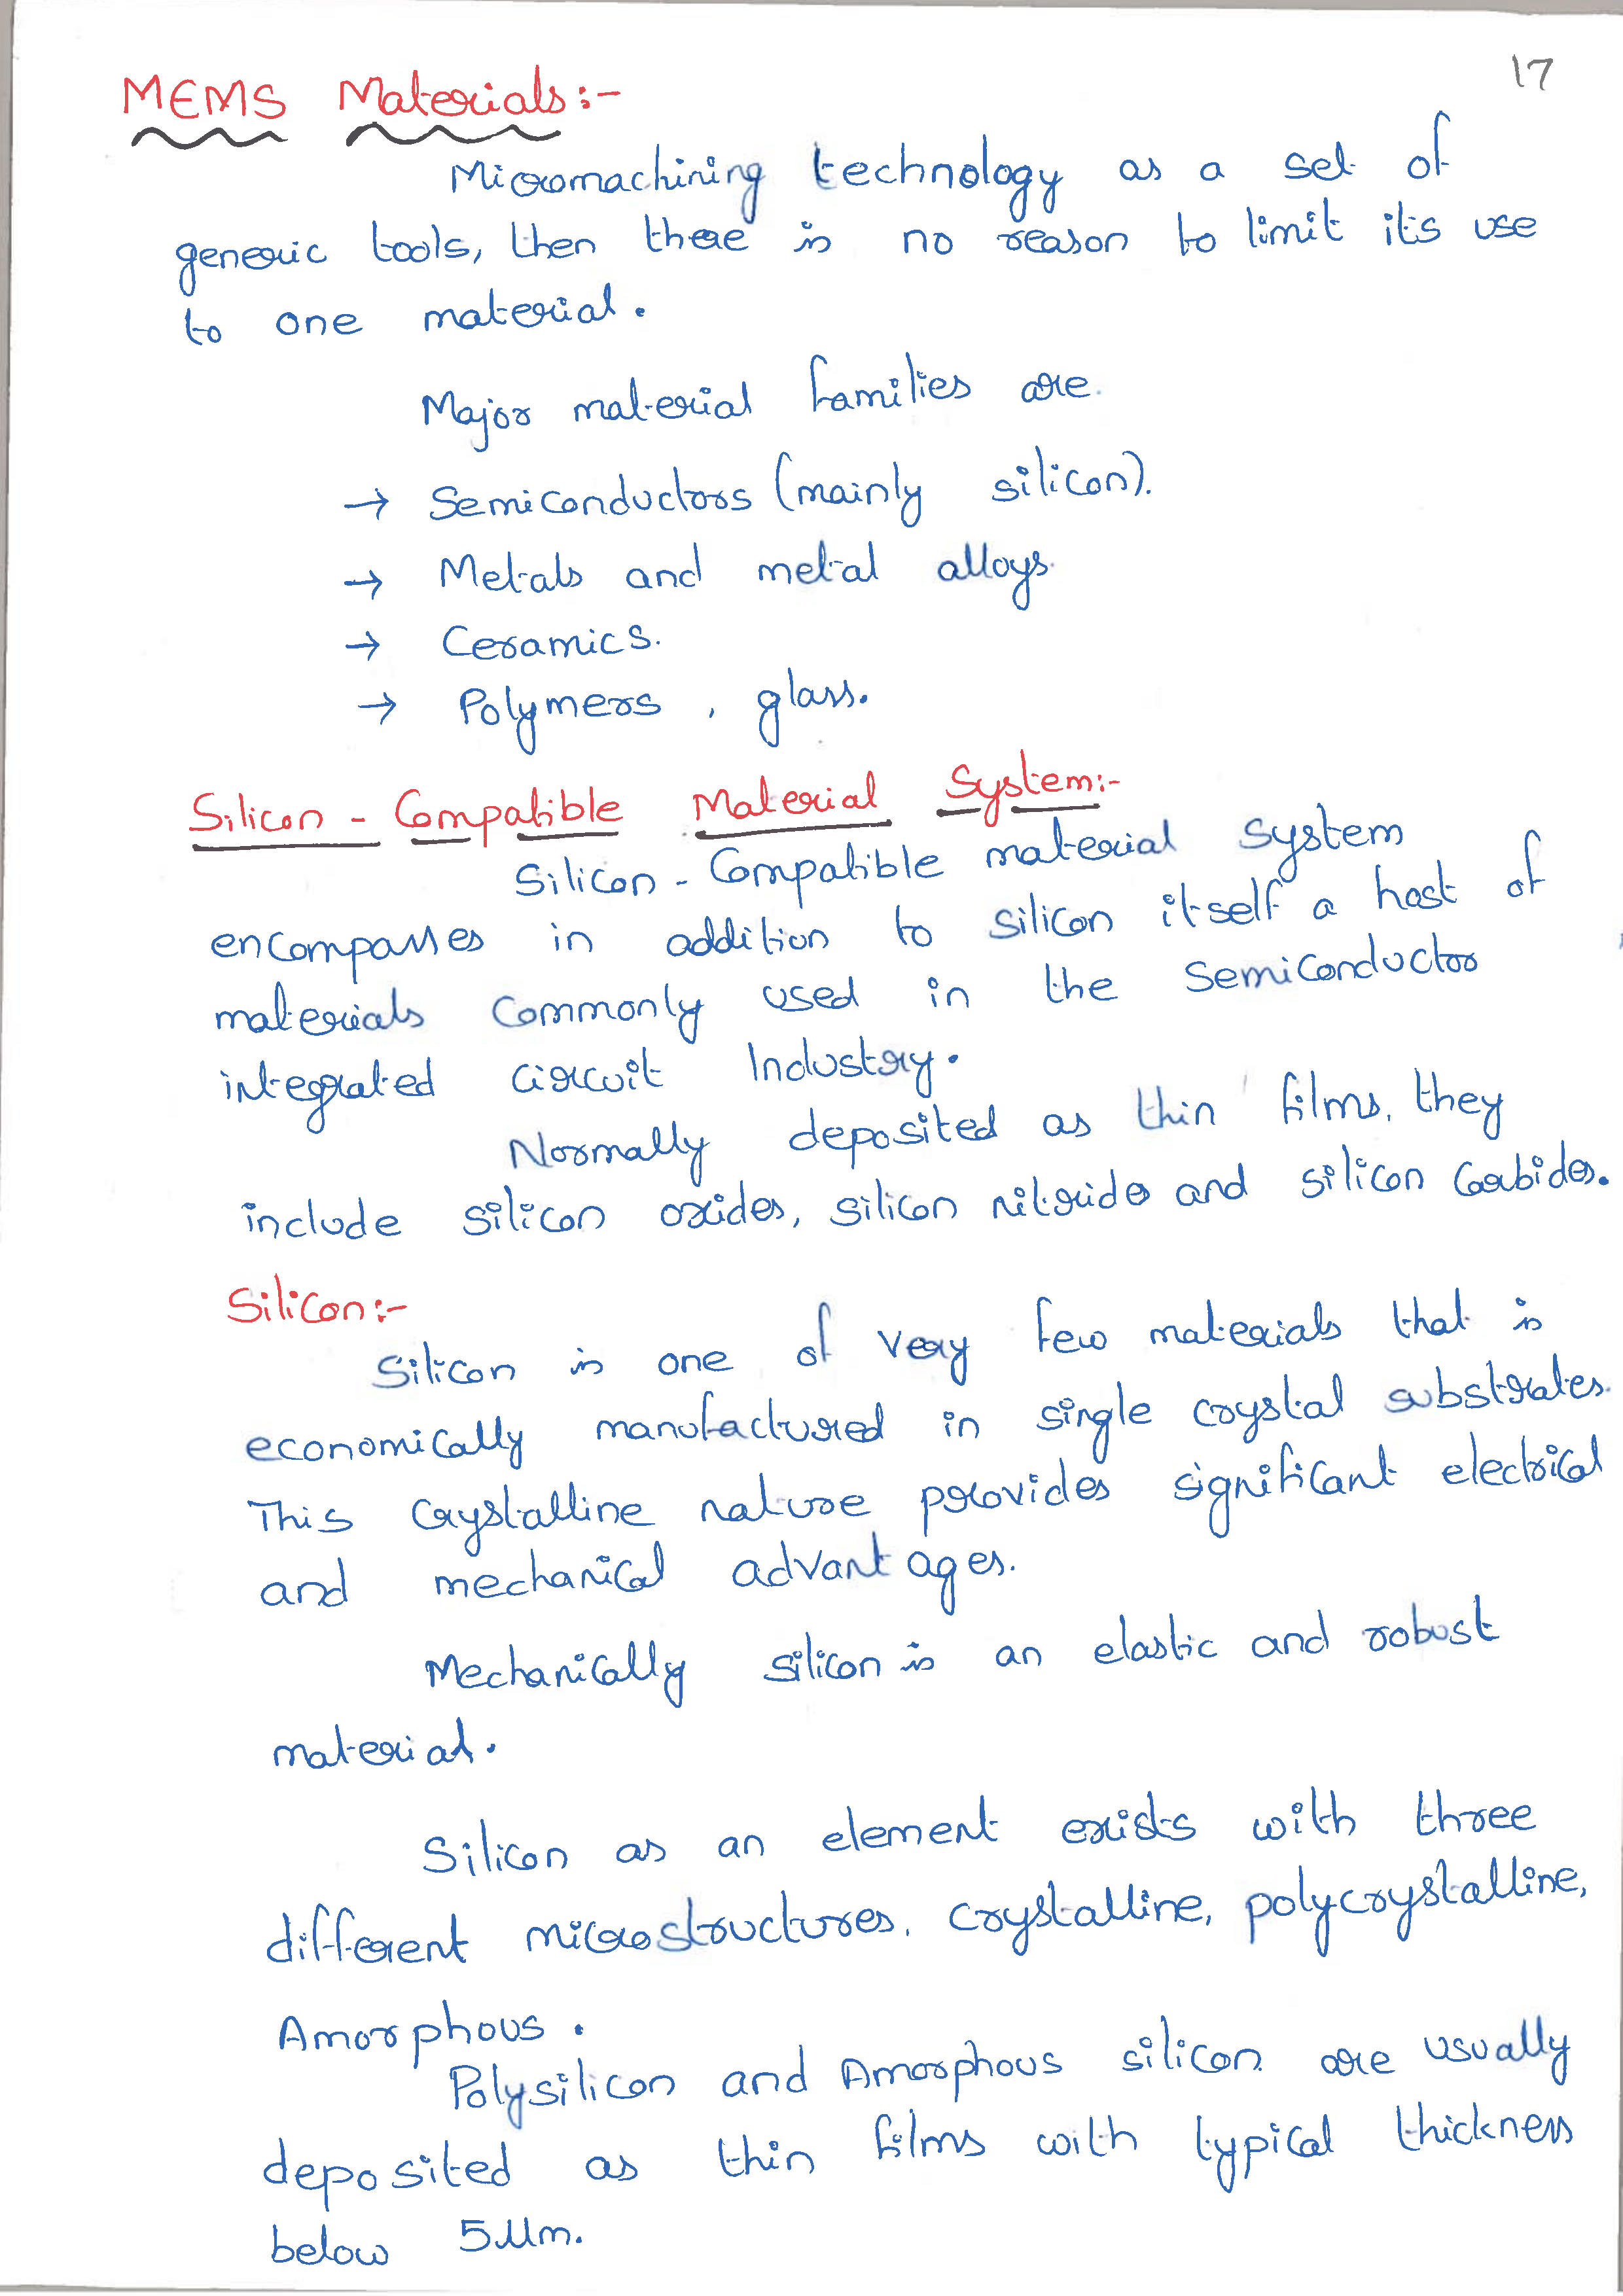 17
MEMS Materials:-
Micromachining technology as a set of
generic tools, then there is no reason to limit it's use
to one material.
Major material families are.
→ Semiconductors (mainly silicon).
→ Metals and metal alloys.
→ Ceramics.
→ Polymers, glass.
Silicon - Compatible Material System:-
Silicon - Compatible material system
encompasses in addition to silicon itself a host of
materials Commonly used in the Semiconductor
integrated circuit Industry.
Normally deposited as thin films, they
include silicon oxides, silicon nitrides and silicon Carbides.
Silicon:-
Silicon is one of very few materials that is
economically manufactured in single crystal substrates.
This Crystalline nature provides significant electrical
and mechanical advantages.
Mechanically silicon is an elastic and robust
material.
Silicon as an element exists with three
different microstructures, crystalline, polycrystalline,
Amorphous.
Polysilicon and Amorphous silicon are usually
deposited as thin films with typical thickness
below 5μm.